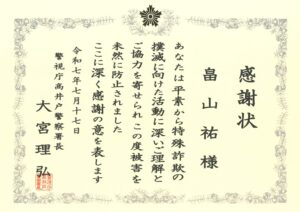 感謝状
畠山祐様
あなたは平素から特殊詐欺の
撲滅に向けた活動に深いご理解と
ご協力を寄せられこの度被害を
未然に防止されました
ここに深く感謝の意を表します
令和七年七月十七日
警視庁高井戸警察署長
大宮理弘